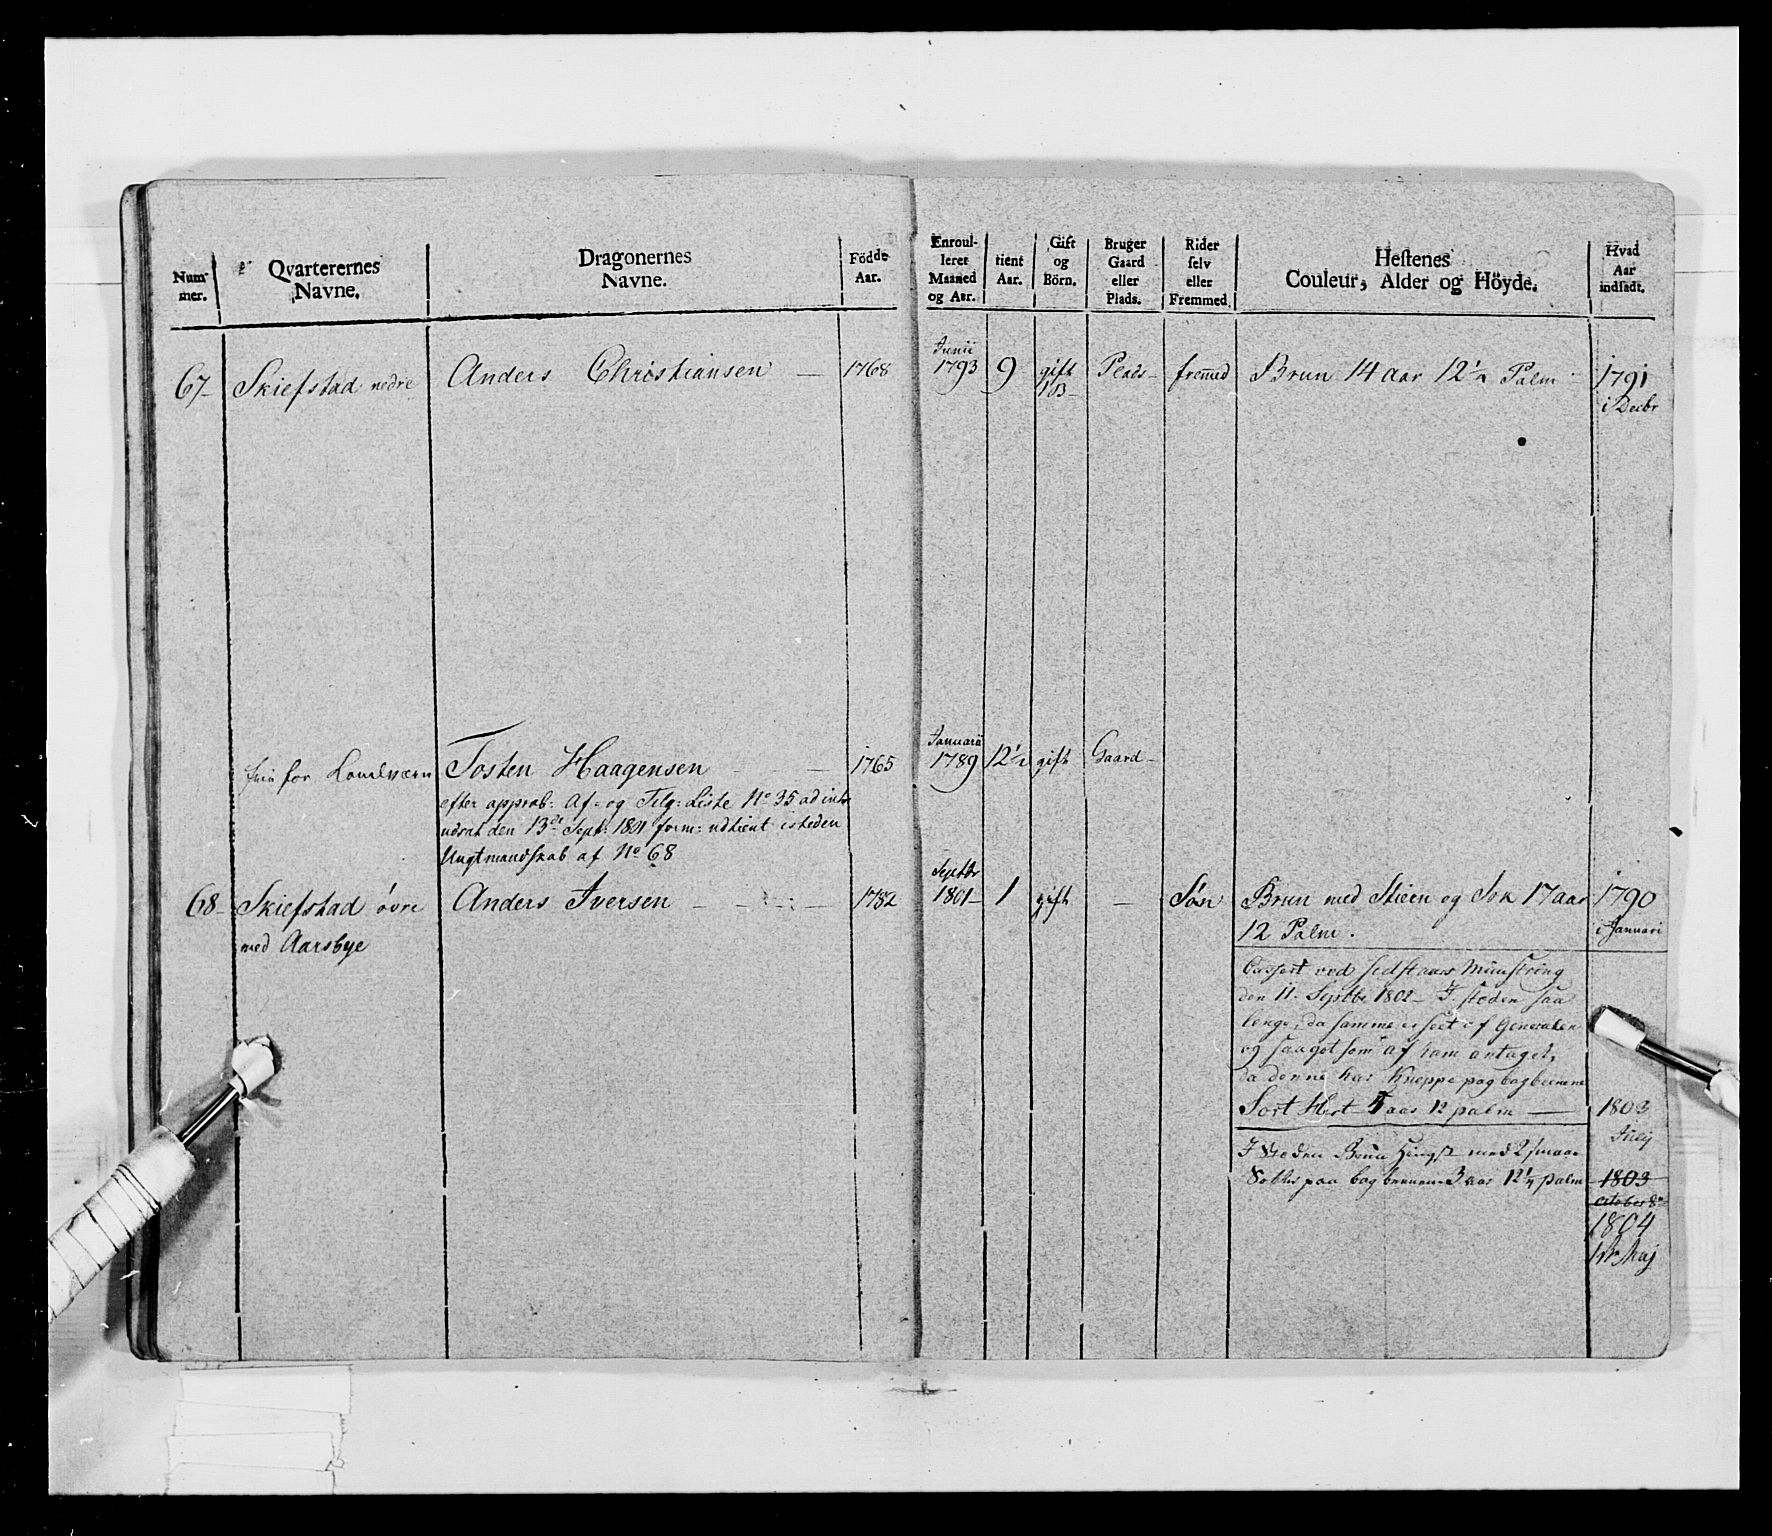 Num-
mer.
Qvarterernes
Navne.
Dragonernes
Navne.
Födde
Aar.
Enroul-
leret
Maaned
og Aar.
tient
Aar.
Gift
og
Börn.
Bruger
Gaard
eller
Plads.
Rider
selv
eller
Fremmed.
Hestenes
Couleur, Alder og Höyde.
Hvad
Aar
indsadt.
67 Skiefstad nedre Anders Christiansen 1768 Junii 1793 9 gift 1B Plads fremed Brun 14 aar 12½ Palm 1791
i Decbr
frie for Landværn Tosten Haagensen 1765 Januarii 1789 12½ gift Gaard
efter approb: Af- og Tilg: Liste No 35 ad
den 13de Sept: 1801 udtient isteden
Ungtmandskab af No 68
68 Skiefstad övre Anders Iversen 1782 Septbr 1801 1 gift - Søn Brun med Stiern og Sok 17 aar 1790
med Aarsbye
12 Palm. i Januari
Cassert ved sidst aars Mønstring
den 11. Septbr 1802 I steden saa
lenge, da samme er seet af Generalen
og saagot som af ham antaget,
da denne har Kneppe paa bagbeenene
Sort Hest 5 aar 12 palm 1803
Julij
I Steden Brun Hingst med 2 smaae
Sokker paa bag beenene 3 aar 12¼ palm 1803
October
1804
Maj